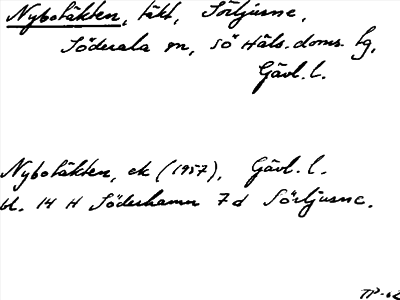 Nybotäkten, täkt, Sörljusne,
Söderala sn, sö Häls. doms. lg,
Gävl. l.
Nybotäkten, ek (1957), Gävl. l.
bl. 14 H Söderhamn 7 d Sörljusne.
TP-62